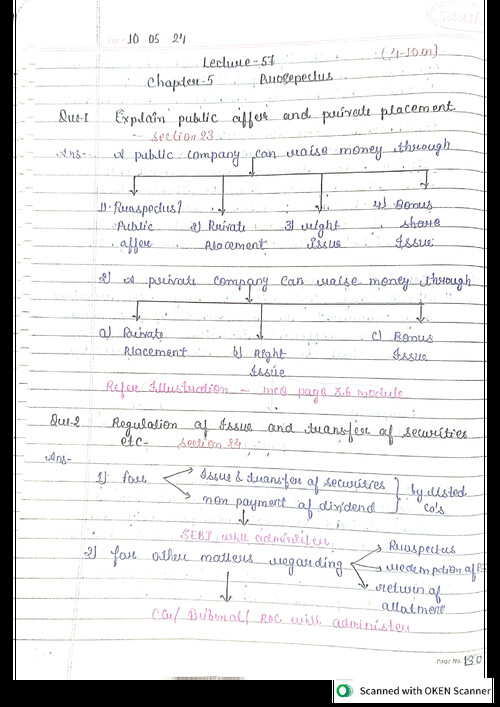 10 05 24
Lecture-57 (4-10m)
Chapter-5 Prospectus
Que-1 Explain public offer and private placement
- section 23
Ans- A public company can raise money through
1) Prospectus/ Public offer
2) Private Placement
3) right Issue
4) Bonus share Issue
2) A private company can raise money through
a) Private Placement
b) Right Issue
c) Bonus Issue
Refer Illustration - mcq page 3.6 module
Que-2 Regulation of Issue and transfer of securities
etc- section 24
Ans-
1) For Issue & transfer of securities
non payment of dividend
by listed co's
SEBI will administer
2) for other matters regarding
Prospectus
redemption of P
return of allotment
CG/ Tribunal/ ROC will administer
Page No. 130
Scanned with OKEN Scanner